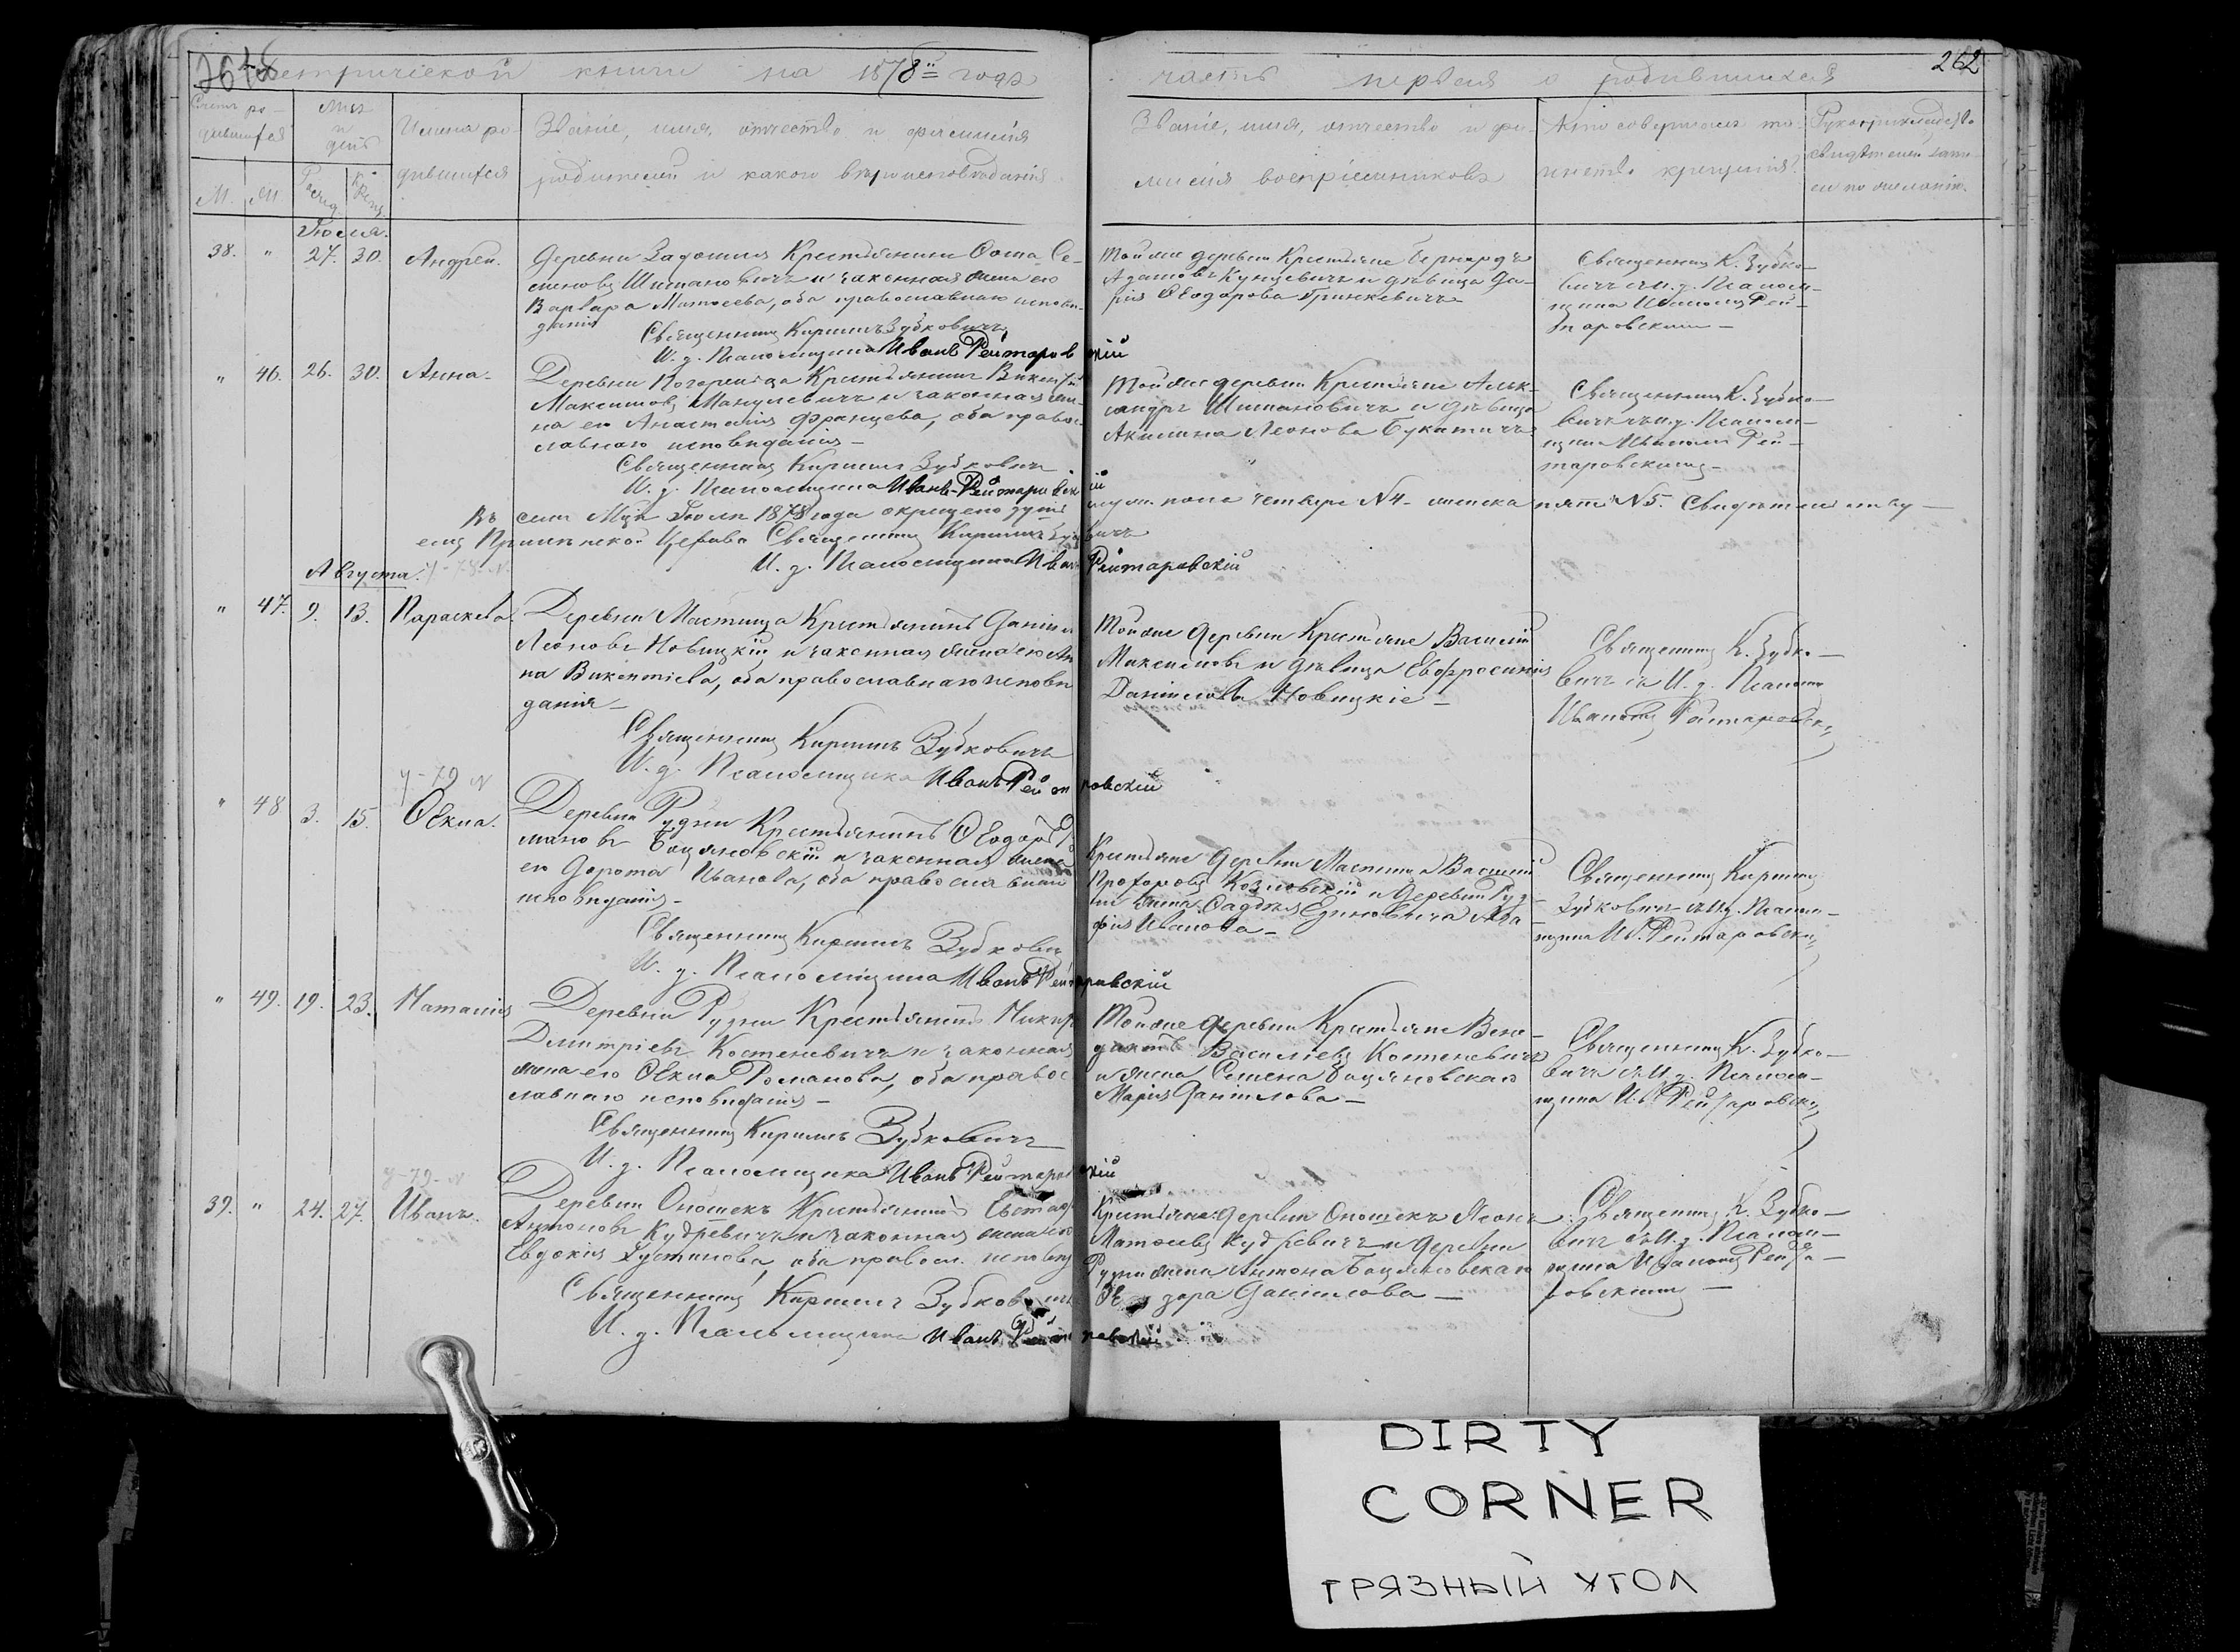 Метрической книги на 1878й годъ
часть первая о родившихся
262
Счетъ ро-
дившихся
М.
Мцъ
и
день
Рожд.
Крещ.
Имена ро-
дившихся
Званіе, имя, отчество и фамилія
родителей и какого вѣроисповѣданія
Званіе, имя, отчество и фа-
милія воспріемниковъ
Кто совершалъ та-
инство крещенія?
Рукоприкладство
свидѣтелей записи
по желанію.
Іюля.
38. " 27. 30. Андрей.
Деревни Крестьянинъ Ѳома Се-
меновъ Шимановичъ и законная жена его
Варвара Матѳеева, оба православнаго исповѣ-
данія
Священникъ Кириллъ Зубковичъ
И. д. Псаломщика Иванъ Рейтаровскій
Той же деревни Крестьяне Бернардъ
Адамовъ Кунцевичъ и дѣвица Да-
рія Ѳеодорова Гринкевичъ
Священникъ К. Зубко-
вичъ съ И. д. Псалом-
щика Иваномъ Рей-
таровскимъ –
" 46. 26. 30. Анна-
Деревни Крестьянинъ Викентій
Максимовъ и законная же-
на его Анастасія Францева, оба право-
славнаго исповѣданія –
Священникъ Кириллъ Зубковичъ
И. д. Псаломщика Иванъ Рейтаровскій
Той же деревни Крестьяне Алек-
сандръ Шимановичъ и дѣвица
Акилина Леонова Букатичъ
Священникъ К. Зубко-
вичъ съ И. д. Псалом-
щика Иваномъ Рей-
таровскимъ –
Въ семъ Мцѣ Іюлѣ 1878 года окрещено душъ муж. пола четыре № 4 – женска пять № 5. Свидѣтельству-
емъ Церкви Священникъ Кириллъ Зубковичъ
И. д. Псаломщика Иванъ Рейтаровскій
Августа.
" 47. 9. 13. Параскева.
Деревни Мастица Крестьянинъ Даніилъ
Леоновъ Новицкій и законная жена его Ан-
на Викентіева, оба православнаго исповѣ-
данія –
Священникъ Кириллъ Зубковичъ
И. д. Псаломщика Иванъ Рейтаровскій
Той же деревни Крестьяне Василій
Максимовъ и дѣвица Евфросинія
Даніилова Новицкіе –
Священникъ К. Зубко-
вичъ съ И. д. Псалом
Иваномъ Рейтаровск:
у-79 N
" 48 3. 15. Ѳекла.
Деревни Рудни Крестьянинъ Ѳеодоръ Ро-
мановъ Боцяновскій и законная жена
его Дорота Иванова, оба православнаго
исповѣданія –
Священникъ Кириллъ Зубковичъ
И. д. Псаломщика Иванъ Рейтаровскій
Крестьяне деревни Мастица Василій
Прохоровъ Козловскій и деревни Руд-
ни жена Ѳаддея Ага
фія Иванова –
Священникъ Кириллъ
Зубковичъ съ И. д. Псалом-
щика Ив. Рейтаровски:
" 49. 19. 23. Наталія
Деревни Рудни Крестьянинъ Никиф
Димитріевъ Костеневичъ и законная
жена его Ѳекла Романова, оба право-
славнаго исповѣданія –
Священникъ Кириллъ Зубковичъ
И. д. Псаломщика Иванъ Рейтаровскій
Той же деревни Крестьяне Вене-
диктъ Васильевъ Костеневичъ
и жена Семена Боцяновскаго
Марія Даніилова –
Священникъ К. Зубко-
вичъ съ И. д. Псалом-
щика Ив. Рейтаровски:
у-79-N
39. " 24. 27. Иванъ.
Деревни Опошекъ Крестьянинъ Евстаф
Антоновъ Кудревичъ и законная жена его
Евдокія Іустинова, оба правосл. исповѣд
Священникъ Кириллъ Зубковичъ
И. д. Псаломщика Иванъ Рейтаровскій
Крестьяне: деревни Опошекъ Леонъ
Матѳеевъ Кудревичъ и деревни
Рудни жена Антона Боцяновскаго
Даніилова –
Священникъ К. Зубко-
вичъ съ И. д. Псалом-
щика Иваномъ Рейта-
ровскимъ –
DIRTY
CORNER
ГРЯЗНЫЙ УГОЛ